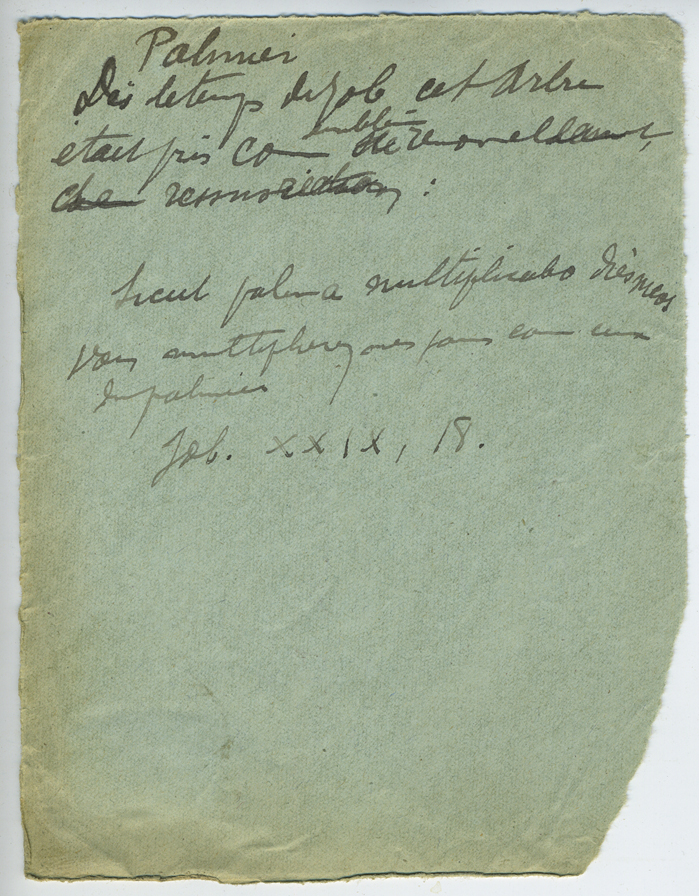 Palmier
Dès le temps de Job cet Arbre
emblème
était pris com de renouvellement,
de resurrection :
Sicut palma multiplicabo dies meos
Vous multiplierez mes jours com ceux
du palmier
Job. XXIX, 18.